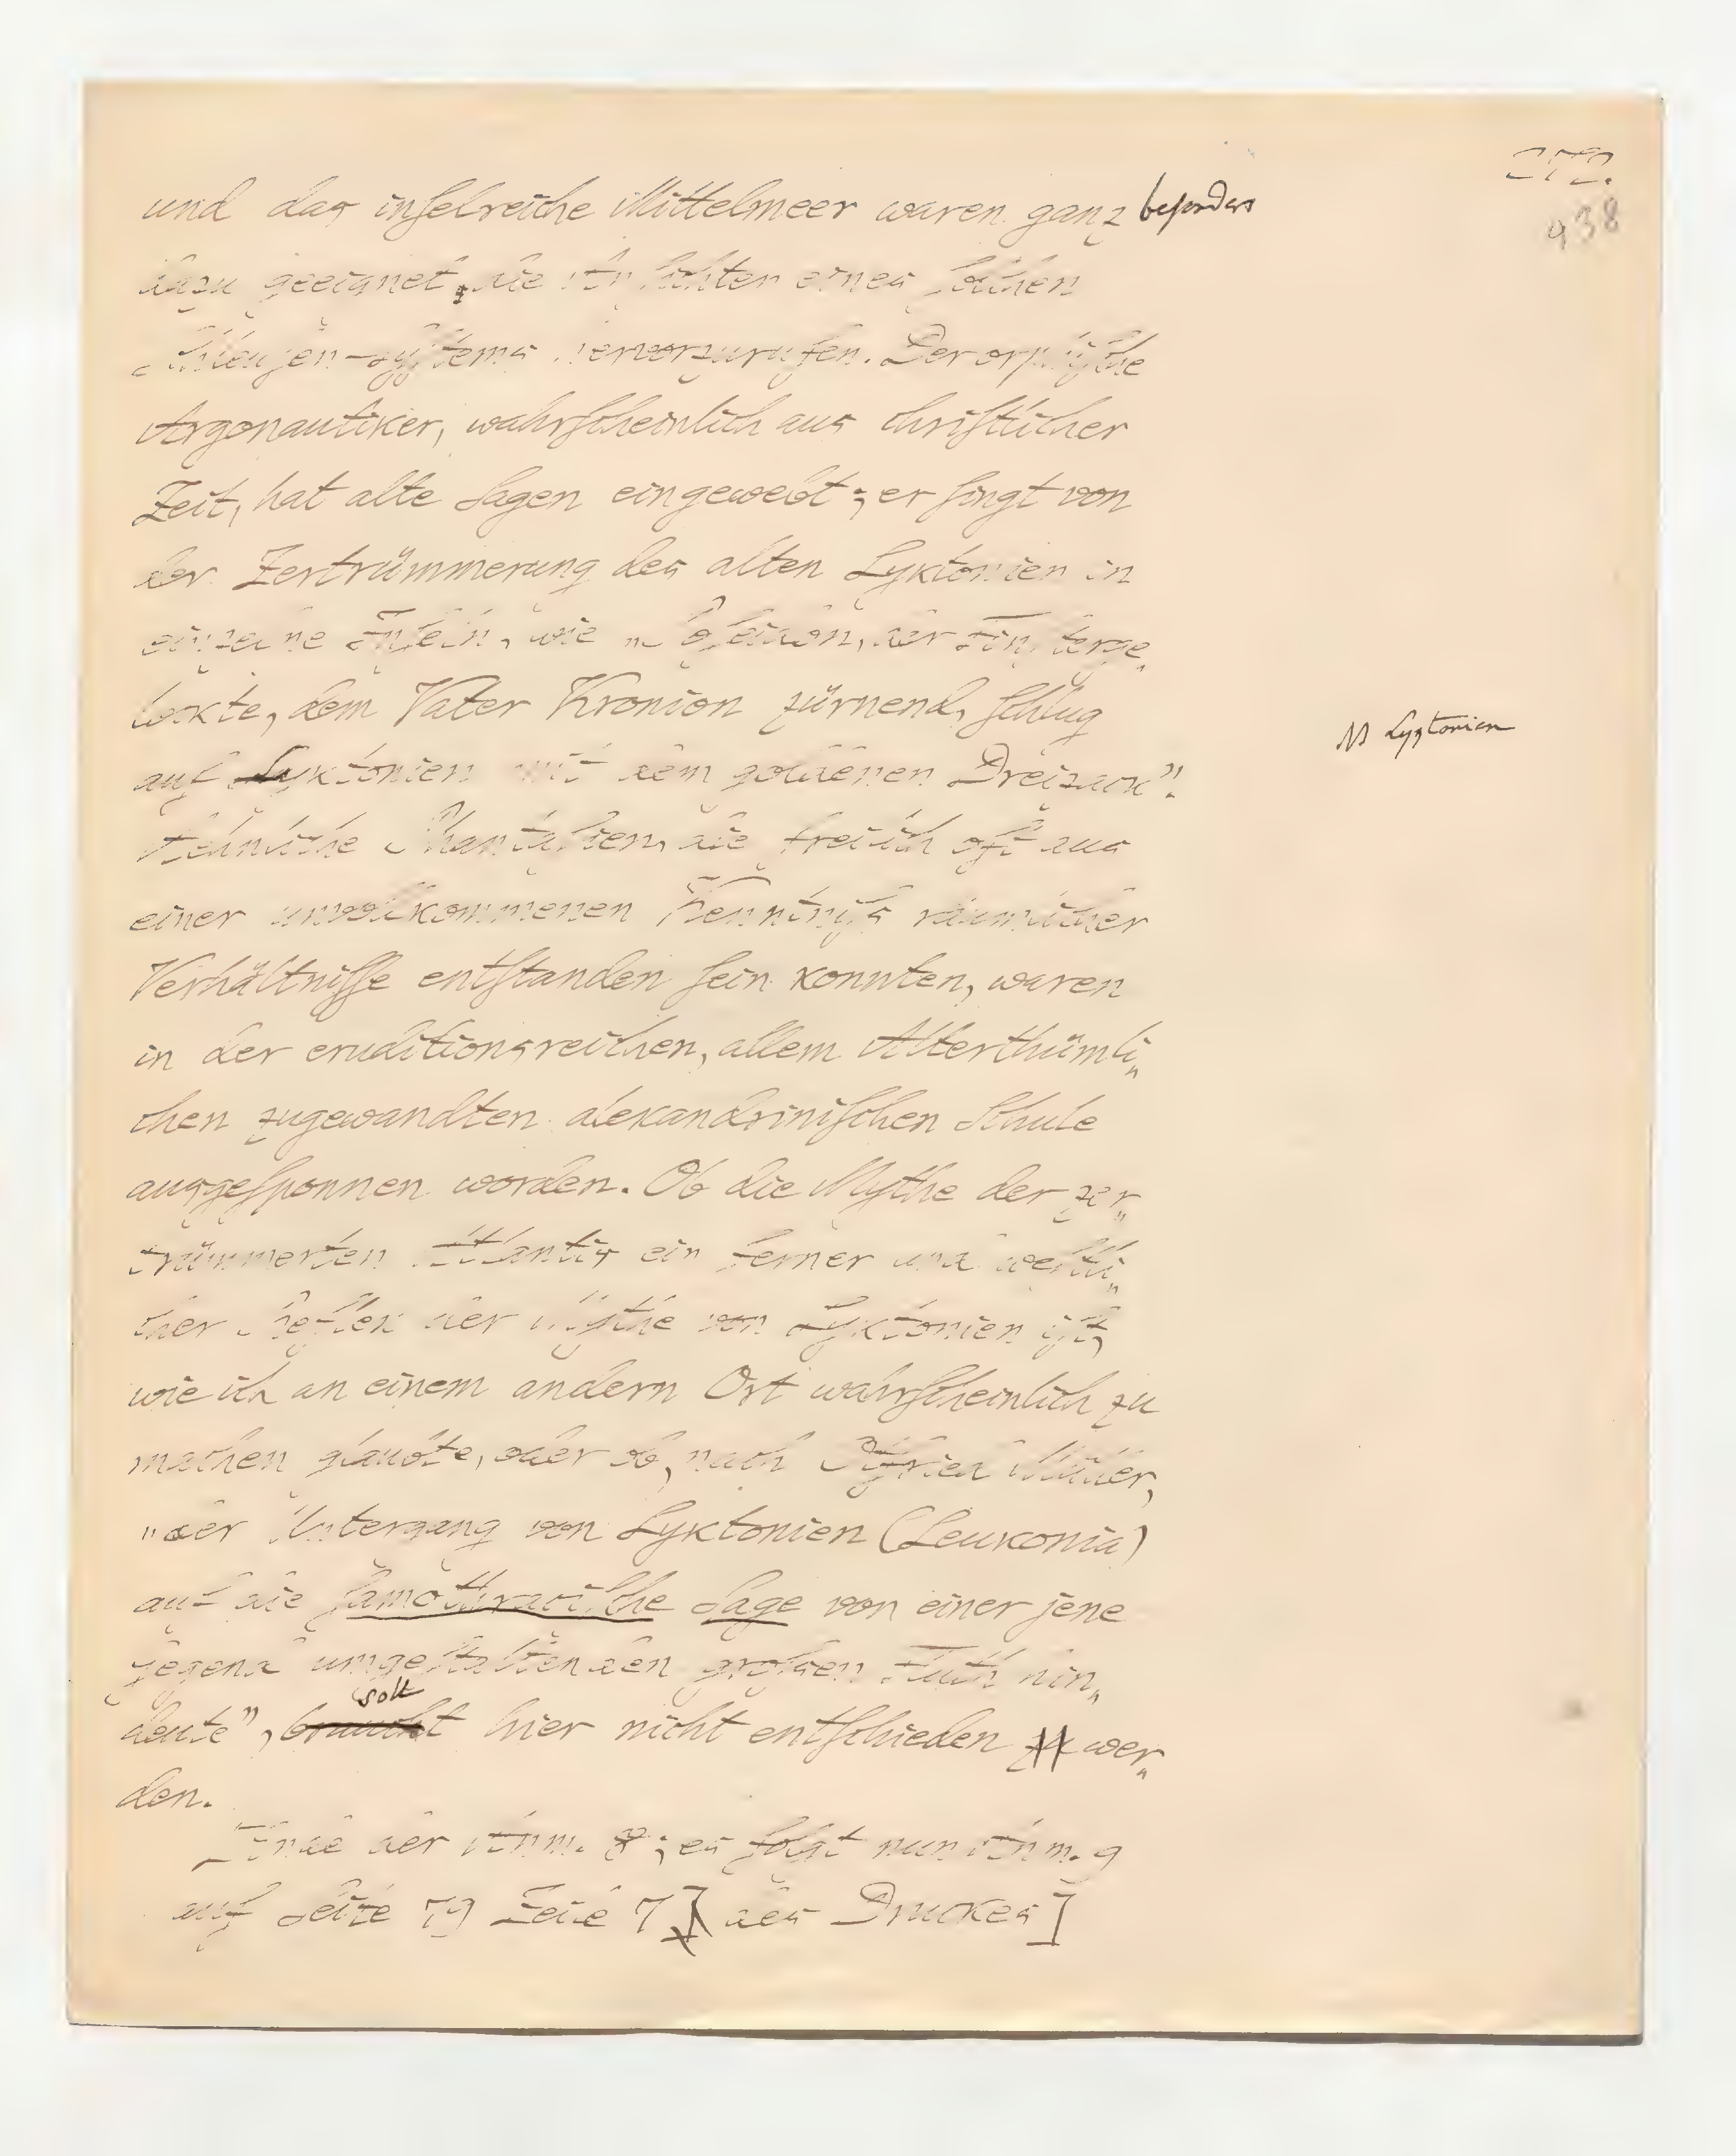 938
und das inselreiche Mittelmeer waren ganz besonders
dazu geeignet, die Ansichten eines solchen
Schleusen-Systems hervorzurufen. Der orphische
Argonautiker, wahrscheinlich aus christlicher
Zeit, hat alte Sagen eingewebt; er singt von
der Zertrümmerung des alten Lyktonien in
einzelne Inseln, wie „Poseidon, der Finsterge„
lockte, dem Vater Kronion zürnend, schlug
auf Lyktonien mit dem goldenen Dreizack".
NB Lyktonien
Aehnliche Phantasien, die freilich oft aus
einer unvollkommenen Kenntniss räumlicher
Verhältnisse entstanden sein konnten, waren
in der eruditionsreichen, allem Alterthümli„
chen zugewandten alexandrinischen Schule
ausgesponnen worden. Ob die Mythe der zer„
trümmerten Atlantis ein ferner und westli„
cher Reflex der Mythe von Lyktonien ist,
wie ich an einem andern Ort wahrscheinlich zu
machen glaubte, oder ob, nach Otfried Müller,
„der Untergang von Lyktonien (Leukonia)
auf die samothracische Sage von einer jene
Gegend umgestaltenden grossen Fluth hin„
soll
deute", braucht hier nicht entschieden zu wer„
den.
Ende der Anm. 8; es folgt nun Anm. 9
auf Seite 79 Zeile 7] des Druckes]